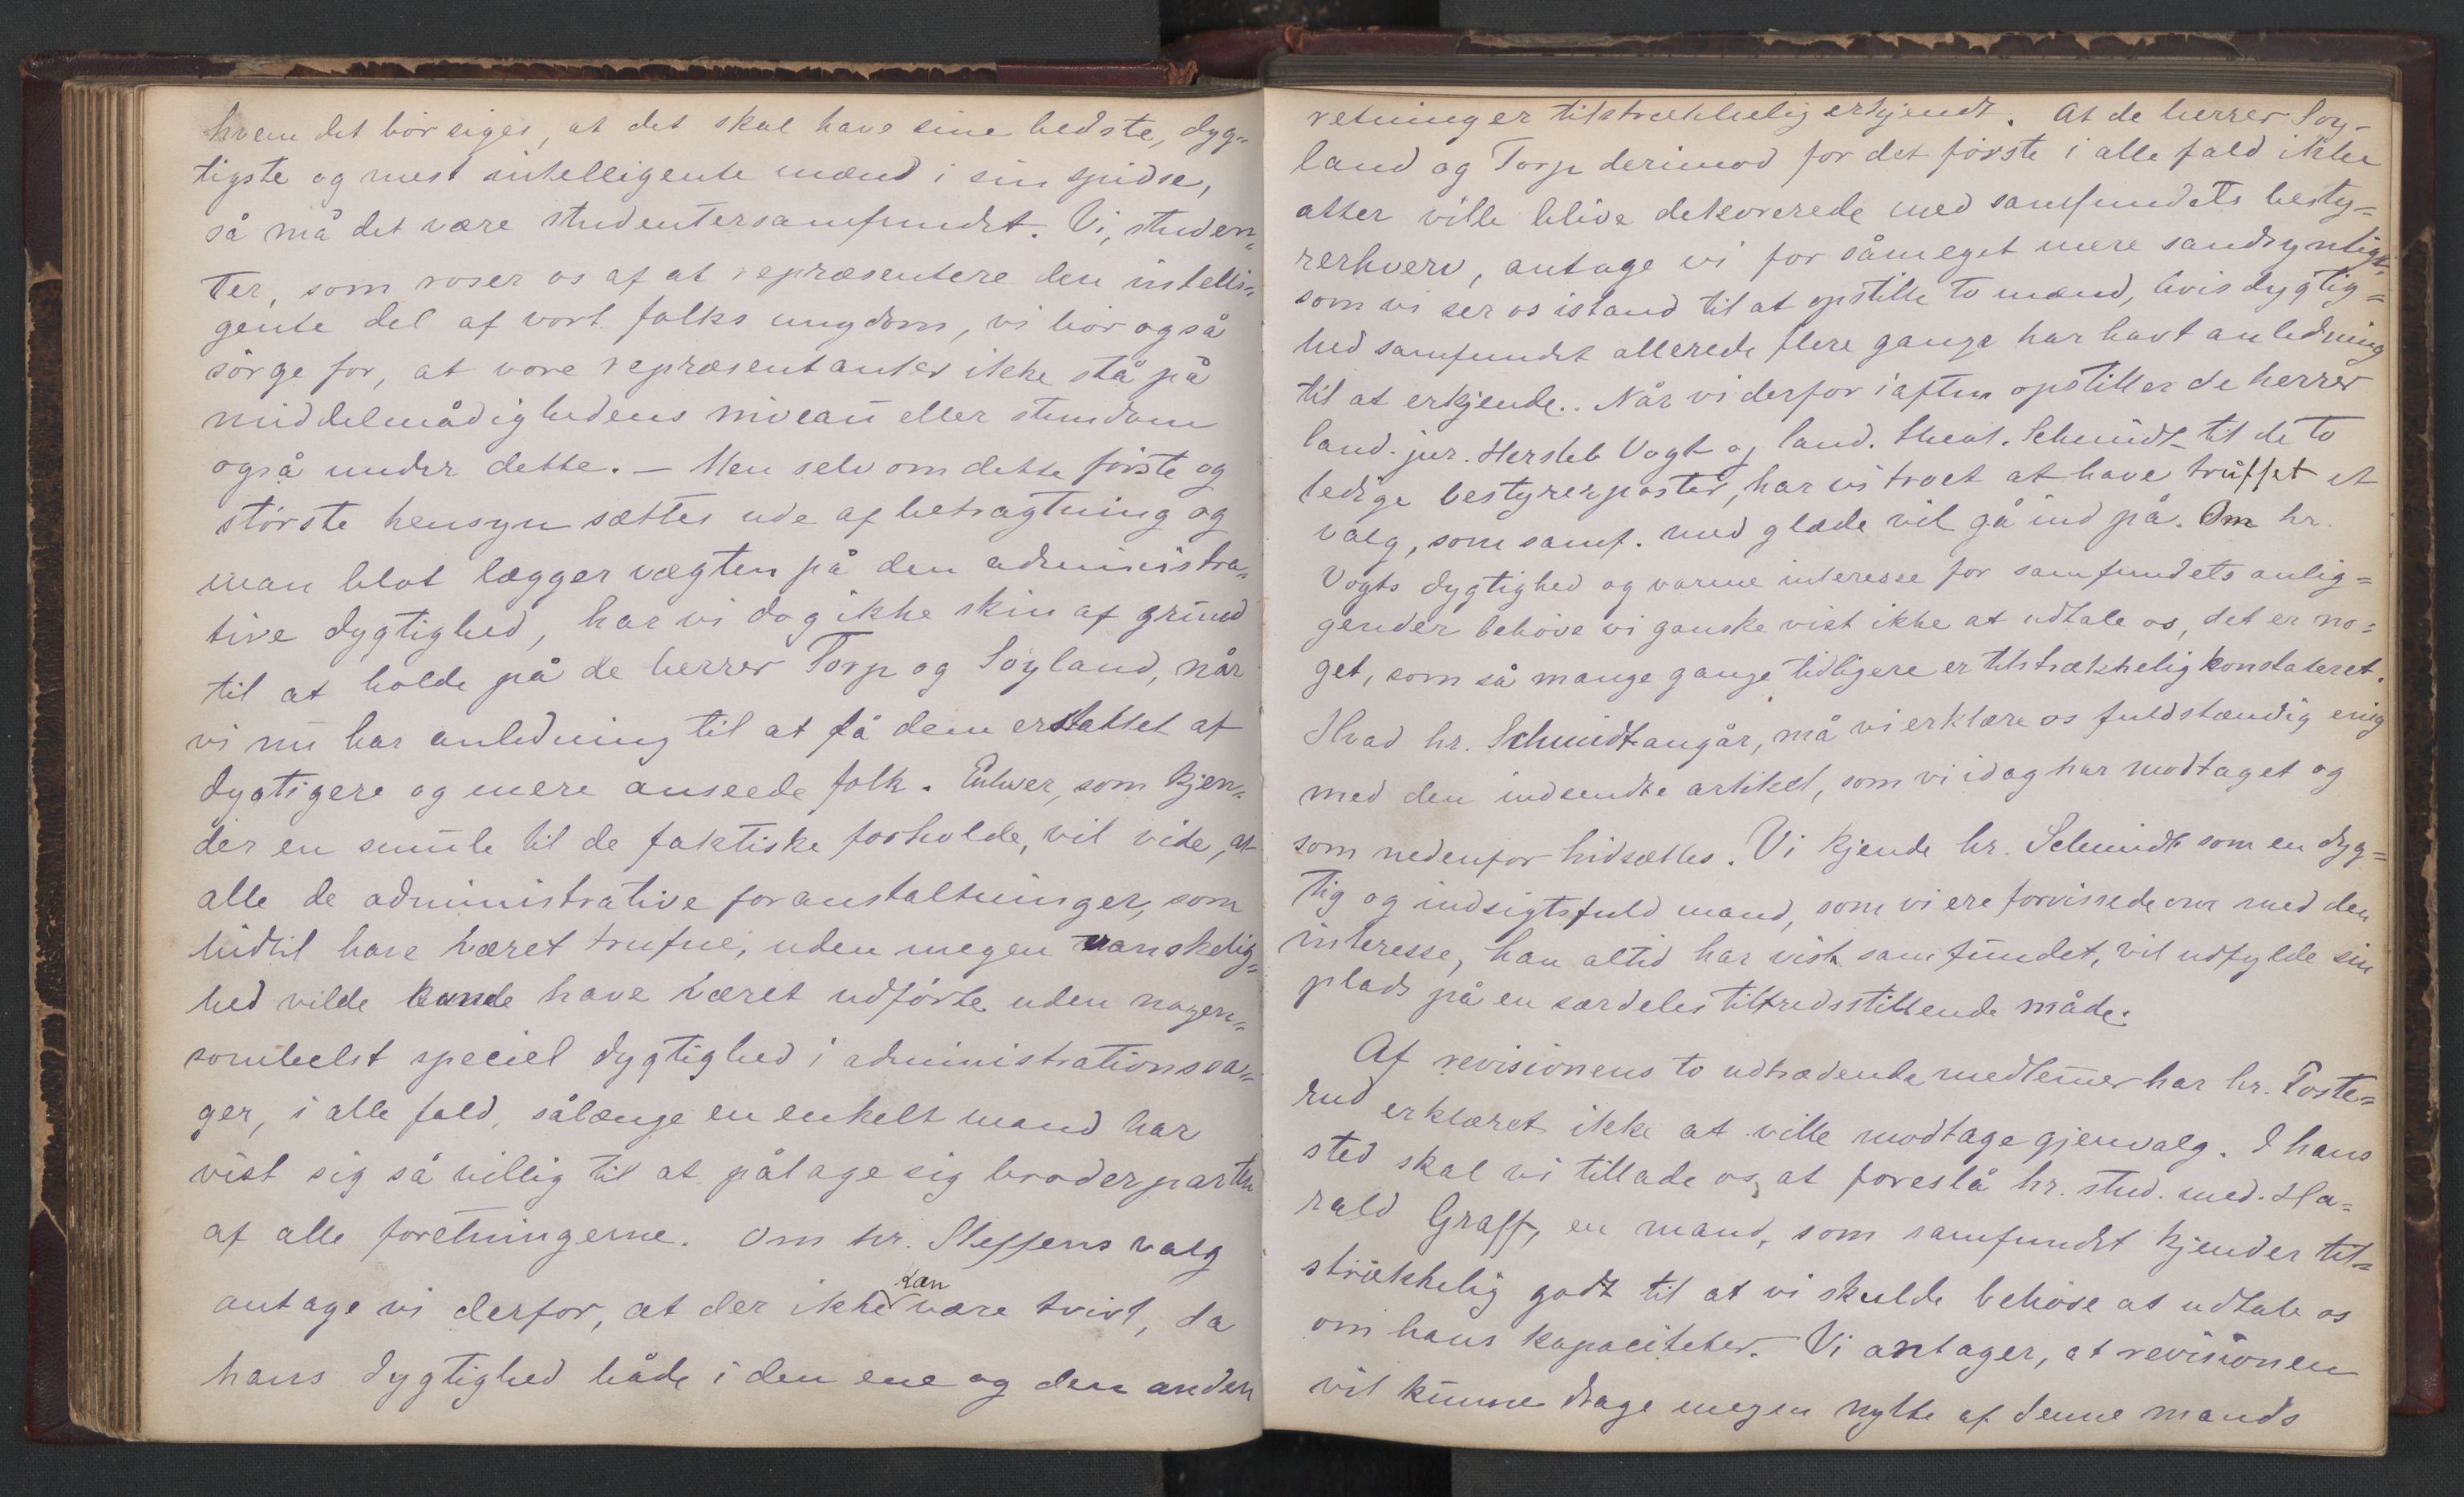 hvem det bör siges, at det skal have sine bedste, dyg=
tigste og mest intelligente mænd i sin spidse,
så må det være studentersamfundet. Vi, studen=
ter, som roser os af at repræsentere den intelli=
gente del af vort folks ungdom, vi bör også
sörge for, at vore repræsentanter ikke stå på
middelmådighedens niveau eller stundom
også under dette. – Men selv om dette förste og
störste hensyn sættes ude af betragtning og
man blot lægger vægten på den administra=
tive dygtighed, har vi dog ikke skin af grund
til at holde på de herrer Torp og Söyland, når
vi nu har anledning til at få dem erstattet af
dygtigere og mere anseede folk. Enhver, som kjen=
der en smule til de faktiske forholde, vil vide, at
alle de administrative foranstaltninger, som
hidtil have været trufne, uden megen vanskelig=
hed vilde kunde have været udförte uden nogen=
somhelst speciel dygtighed i administrationssa=
ger, i alle fald, sålænge en enkelt mand har
vist sig så villig til at påtage sig broderparten
af alle forretningerne. Om hr. Steffens valg
antage vi derfor, at der ikke kan være tvivl, da
hans dygtighed både i den ene og den anden
retning er tilstrækkelig erkjendt. At de herrer Söy-
land og Torp derimod for det förste i alle fald ikke
atter ville blive dekorerede med samfundets besty=
rerhverv, antage vi for såmeget mere sandsynligt,
som vi ser os istand til at opstille to mænd, hvis dygtig=
hed samfundet allerede flere gange har havt anledning
til at erkjende. Når vi derfor iaften opstiller de herrer
cand. jur. Hersleb Vogt og cand. theol. Schmidt til de to
ledige bestyrerposter, har vi troet at have truffet et
valg, som samf. med glæde vil gå ind på. Om hr.
Vogts dygtighed og varme interesse for samfundets anlig=
gender behöve vi ganske vist ikke at udtale os, det er no=
get, som så mange gange tidligere er tilstrækkelig konstateret.
Hvad hr. Schmidt angår, må vi erklære os fuldstændig enig
med den indsendte artikel, som vi idag har modtaget og
som nedenfor hidsættes. Vi kjende hr. Schmidt som en dyg=
tig og indsigtsfuld mand, som vi ere forvissede om med den
interesse, han altid har vist samfundet, vil udfylde sin
plads på en særdeles tilfredsstillende måde.
Af revisionens to udtrædende medlemmer har hr. Toste=
rud erklæret ikke at ville modtage gjenvalg. I hans
sted skal vi tillade os, at foreslå hr. stud. med. Ha=
rald Graff, en mand, som samfundet kjender til=
strækkelig godt til at vi skulde behöve at udtale os
om hans kapaciteter. Vi antager, at revisionen
vil kunne drage megen nytte af denne mands